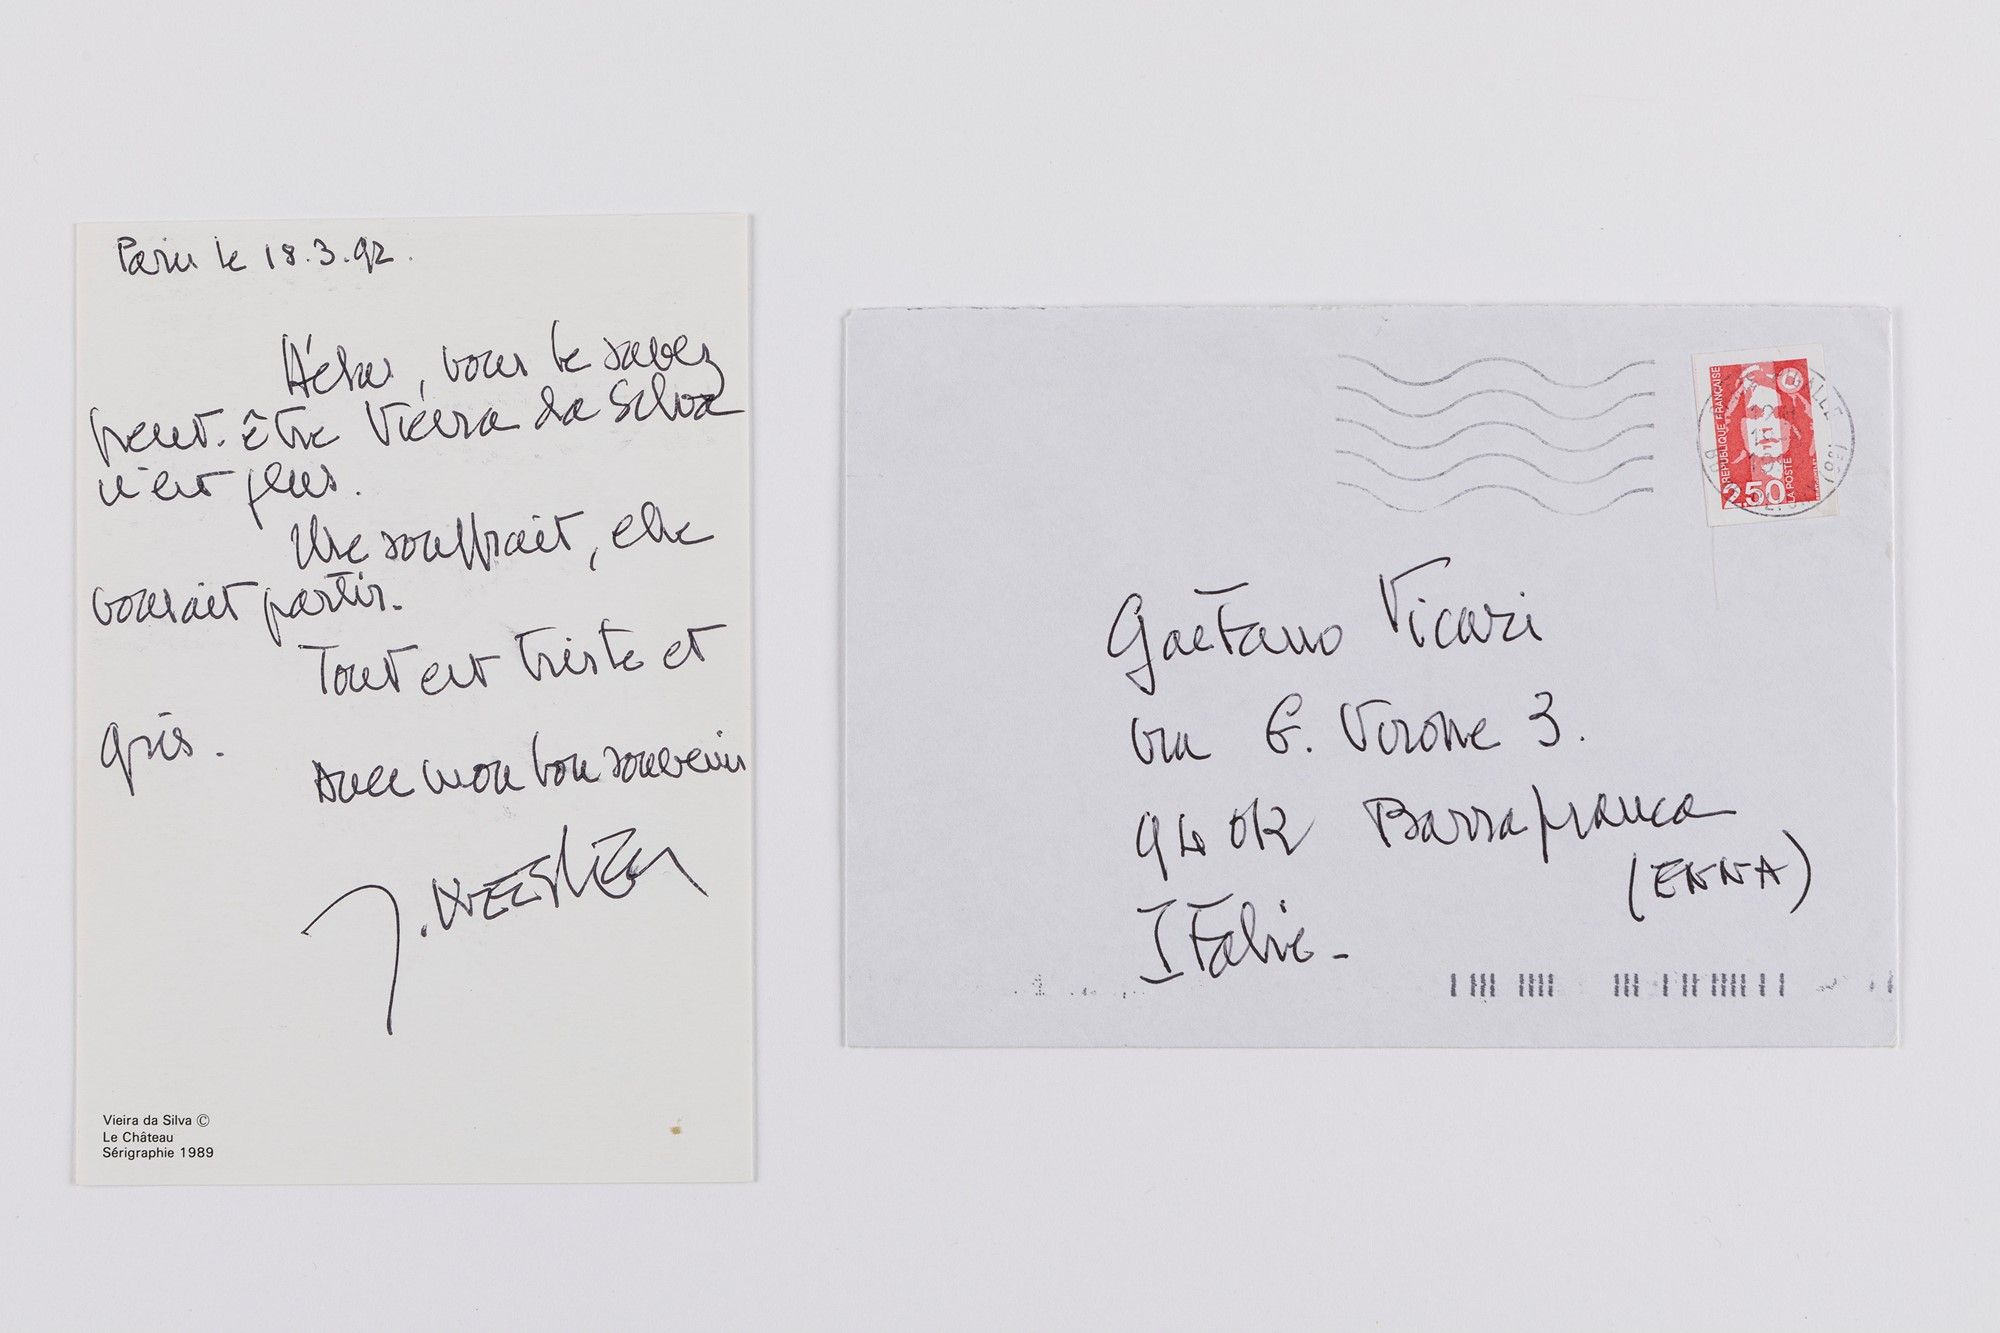 Paris le 18.3.92.
Hélas, vous le savez
peut-être Vieira da Silva
n'est plus.
Elle souffrait, elle
voulait partir.
Tout est triste et
gris.
Avec mon bon souvenir
Vieira da Silva ©
Le Château
Sérigraphie 1989
REPUBLIQUE FRANÇAISE
2,50
LA POSTE
Gaetano Vicari
via G. Verone 3.
94012 Barrafranca
(ENNA)
Italie-